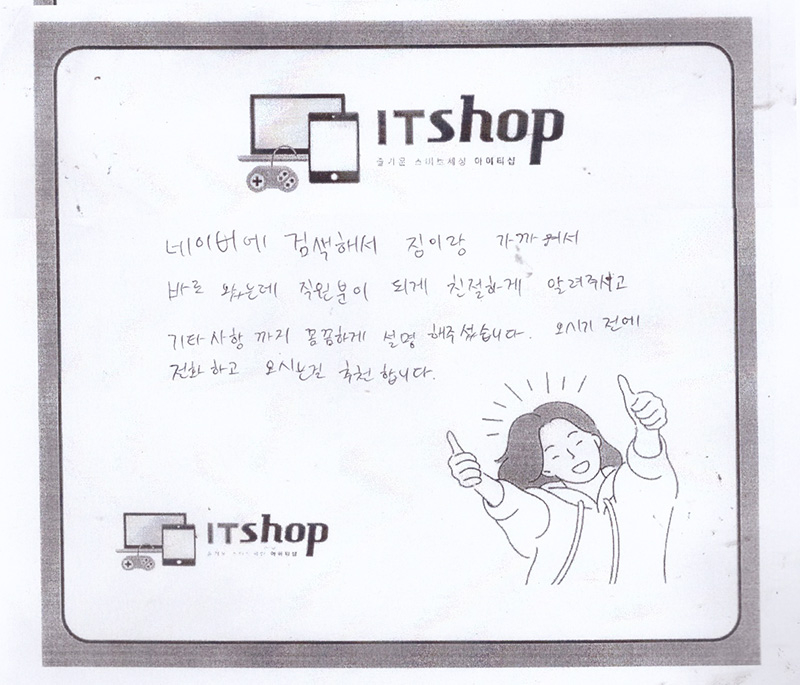 ITshop
즐거운 스마트세상 아이티샵
네이버에 검색해서 집이랑 가까워서
바로 왔는데 직원분이 되게 친절하게 알려주시고
기타사항 까지 꼼꼼하게 설명 해주셨습니다. 오시기 전에
전화 하고 오시는걸 추천 합니다.
ITshop
아이티샵